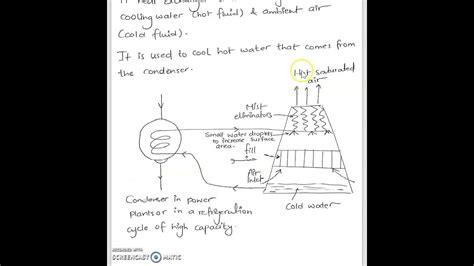 cooling water (hot fluid) & ambient air
(cold fluid).
It is used to cool hot water that comes from
the condenser.
Hot saturated
air
Mist
eliminators
Small water droplets
to increase surface
area.
fill
Air
inlet
Cold water
Condenser in power
plants or in a refrigeration
cycle of high capacity.
RECORDED WITH
SCREENCAST MATIC